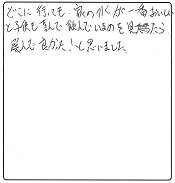 どこに行っても、家の水が一番おいしい
と子供も喜んで飲んでいるのを見ましたら
選んで良かった!と思いました